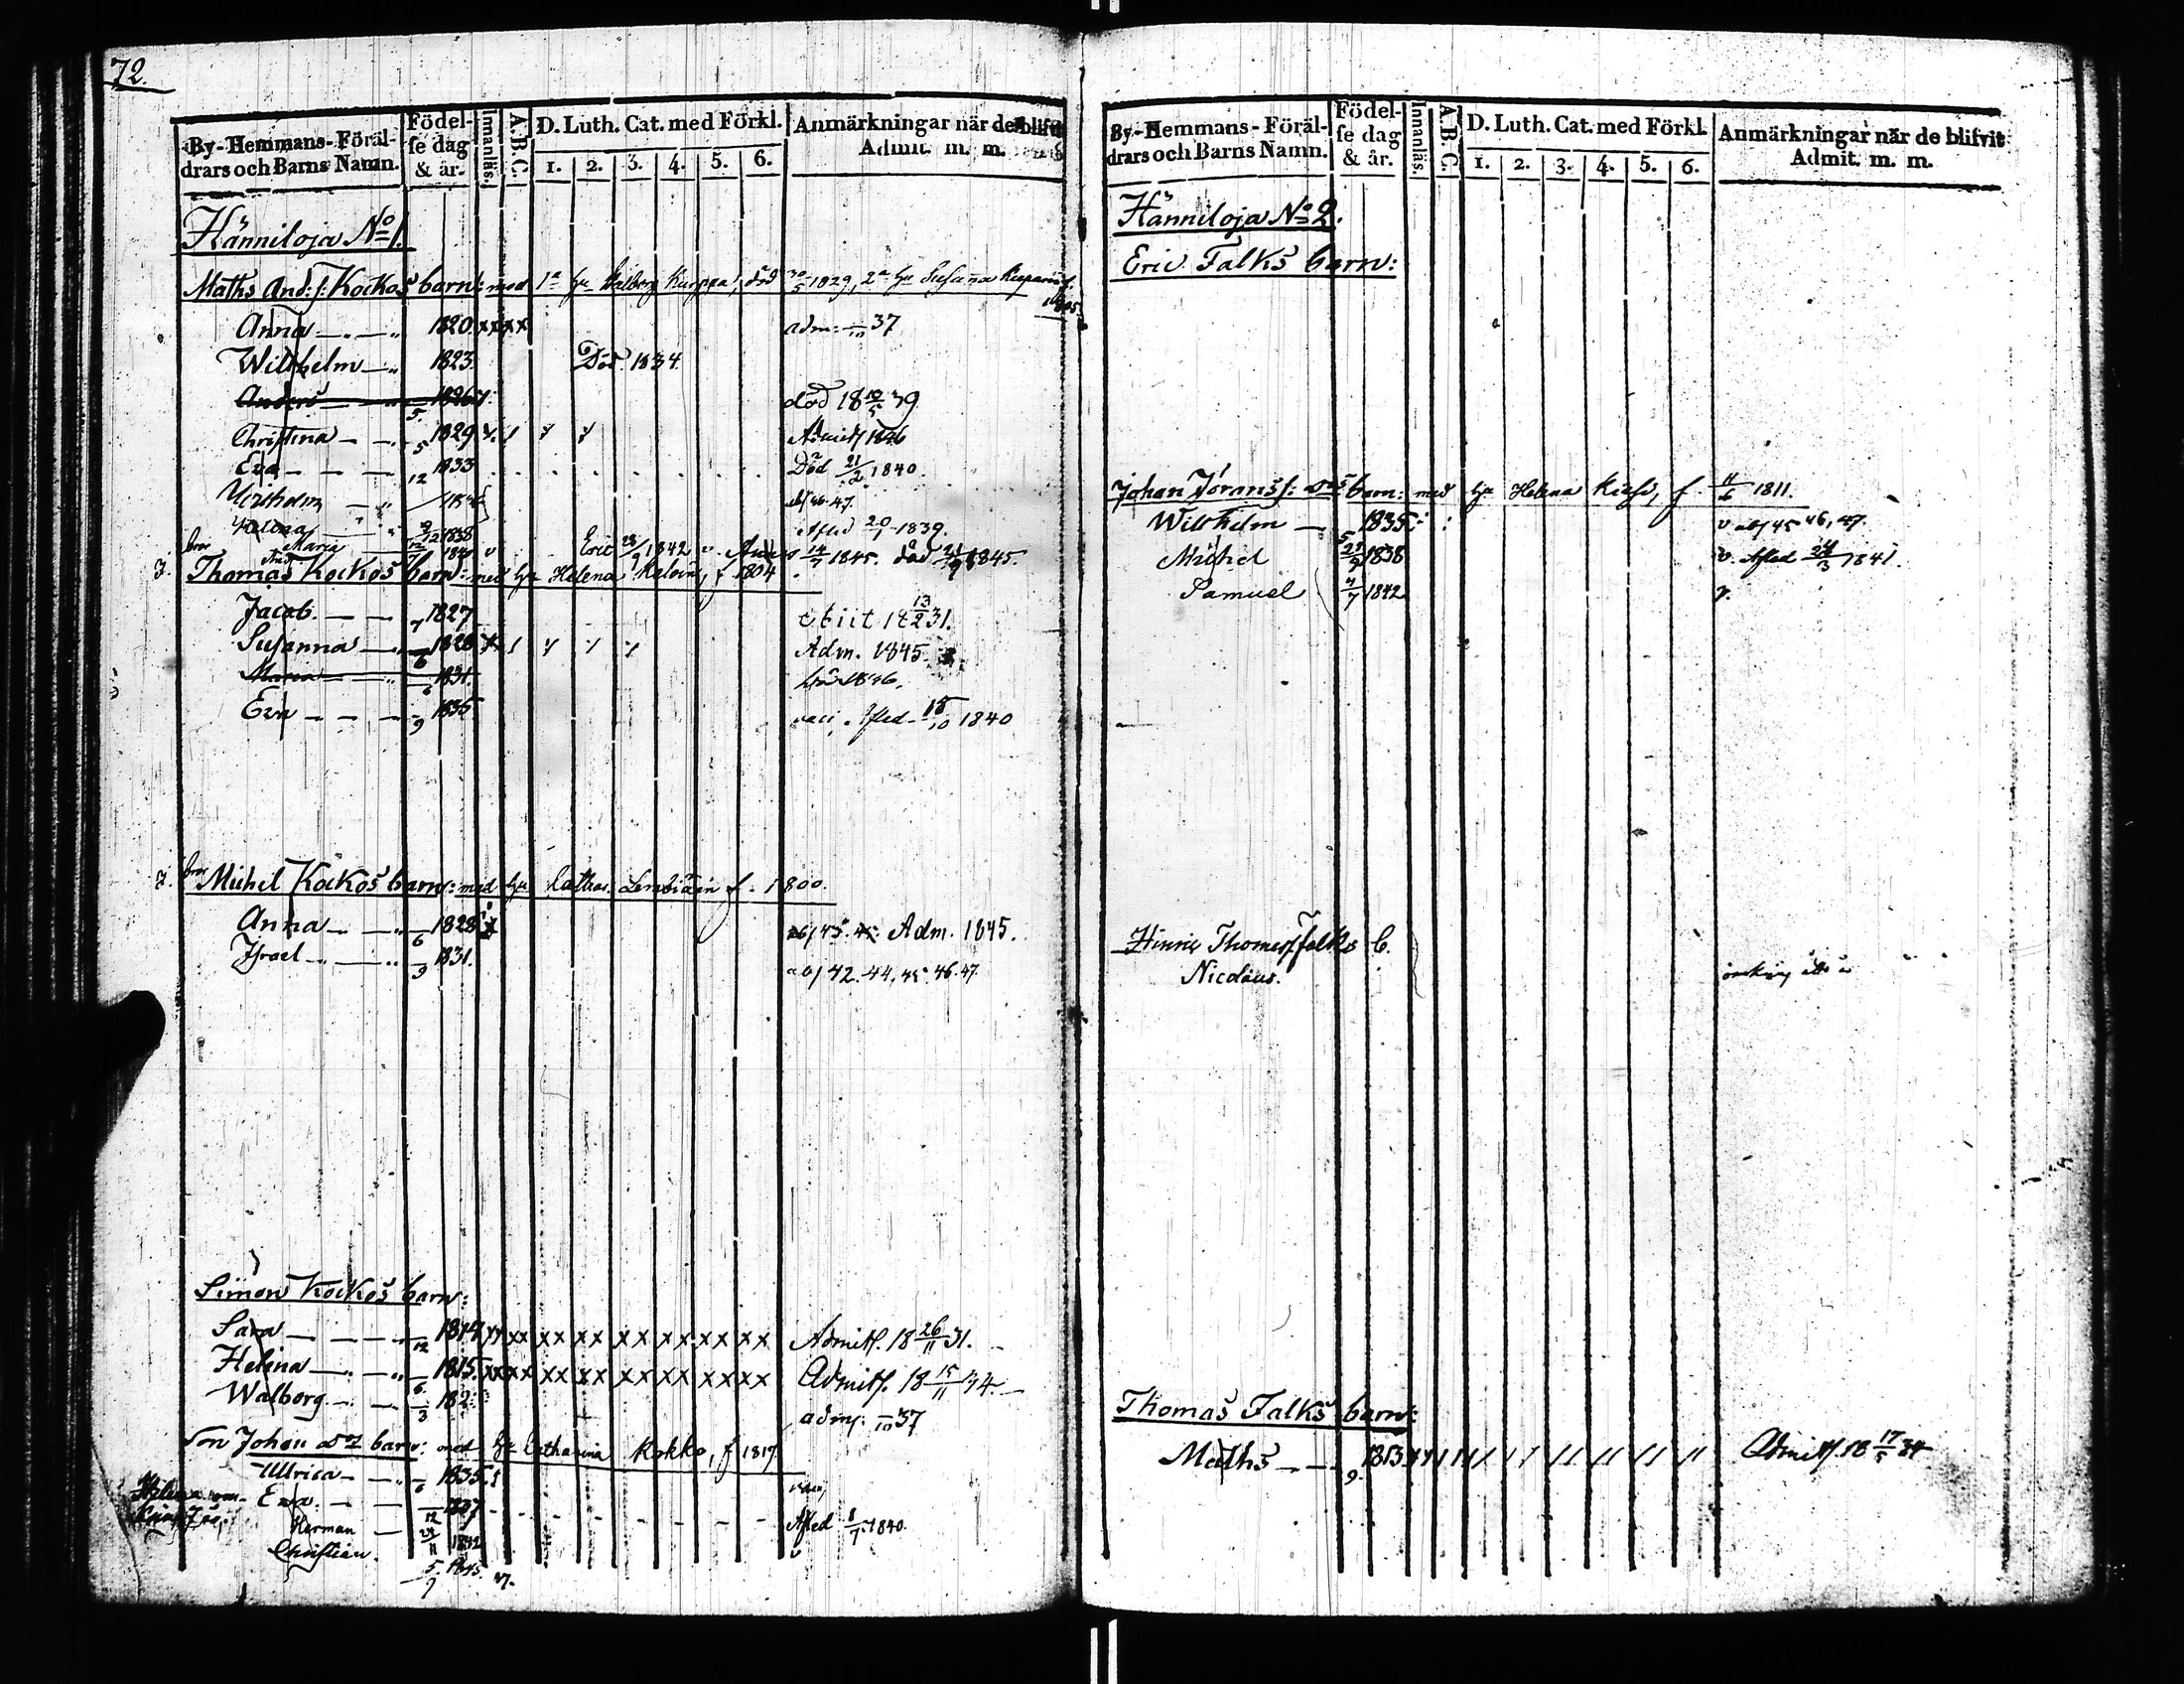 72.
By-Hemmans-Föräldrars och Barns Namn. Födelse dag & år. Innanläs. A.B.C. D. Luth. Cat. med Förkl. 1. 2. 3. 4. 5. 6. Anmärkningar när de blifvit Admit. m. m.
Hänniloja No 1.
Maths And:s: Kockos barn: med 1a hu Walborg Kurppa, död 30/5 1829, 2a hu Susanna
Anna 1820. xx xx adm: /10 37
Wilhelm 1823. Död. 1834.
Anders /5 1826 död 18 10/5 39
Christina /5 1829 Admits 1846
Eva /12 1833 Död 21/2 1840.
Wilhelm 46. 47.
Helena 9/12 1838 Afled 20/1 1839.
Maria 1840 v Eric 23/9 1842 v. 14/7 1845. död 21/9 1845.
bror Thomas Kockos barn: med hu Helena f 1804
Jacob /7 1827 obiit 18 13/2 31.
Susanna /6 1828 Adm. 1845.
Maria /6 1831. 1846.
Eva /9 1835 vaci. Afled 15/10 1840
bror Michel Kockos barn: med hu Cathar. Lembiäin f. 1800.
Anna /6 1828 Adm. 1845.
Israel /9 1831. abs 42. 44. 45. 46. 47.
Simon Kockos barn:
Sara /12 1814 xx xx xx xx xx xx xx xx Admits. 18 26/11 31.
Helena /6 1815. xx xx xx xx xx xx xx xx Admits. 18 15/11 34.
Walborg /3 182 adms. /10 37
Son Johan dos barn: med hu Catharina Kokko, f 1817
Ullrica /6 1835.
Eva /12 1837 Afled 8/7 1840.
Herman 24/11 1842 v
Christian. 5/9 1845.
Helena
By-Hemmans-Föräldrars och Barns Namn. Födelse dag & år. Innanläs. A.B.C. D. Luth. Cat. med Förkl. 1. 2. 3. 4. 5. 6. Anmärkningar när de blifvit Admit. m. m.
Hänniloja No 2.
Eric Falks barn:
Johan Jöranss: dos barn: med hu Helena f. 11/6 1811.
Wilhelm /5 1835. v abs 45 46, 47.
Michel 29/9 1838 v. Afled 24/3 1841.
Samuel 4/7 1842 v.
Hinric Thomess falks b.
Nicolaus.
Thomas Falks barn:
Maths /9 1813 Admits. 18 17/5 34